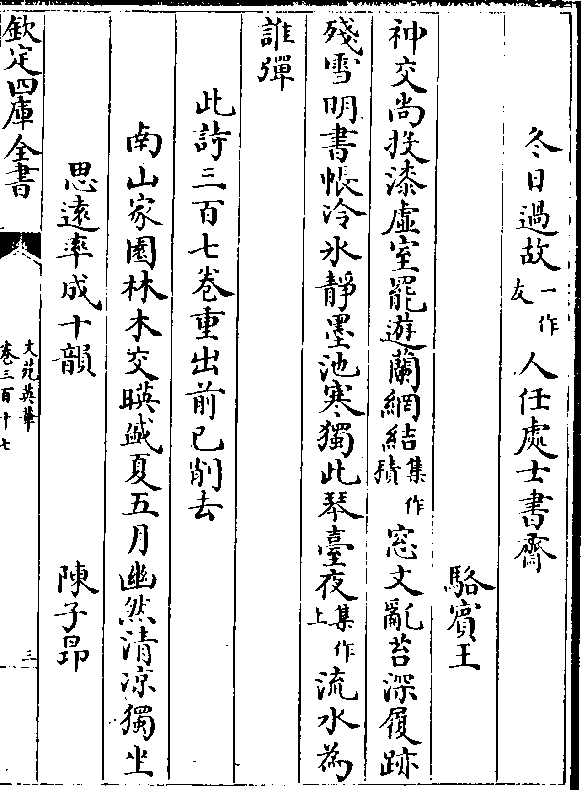 冬日過故一作友人任處士書齋
駱賓王
神交尚投漆虛室罷遊蘭網結集作積窓文亂苔深履跡
殘雪明書帳冷氷靜墨池寒獨此琴臺夜集作上流水為
誰彈
此詩三百七卷重出前已削去
南山家園林木交暎盛夏五月幽然清凉獨坐
思遠率成十韻
陳子昂
欽定四庫全書
文苑英華
卷三百十七
三